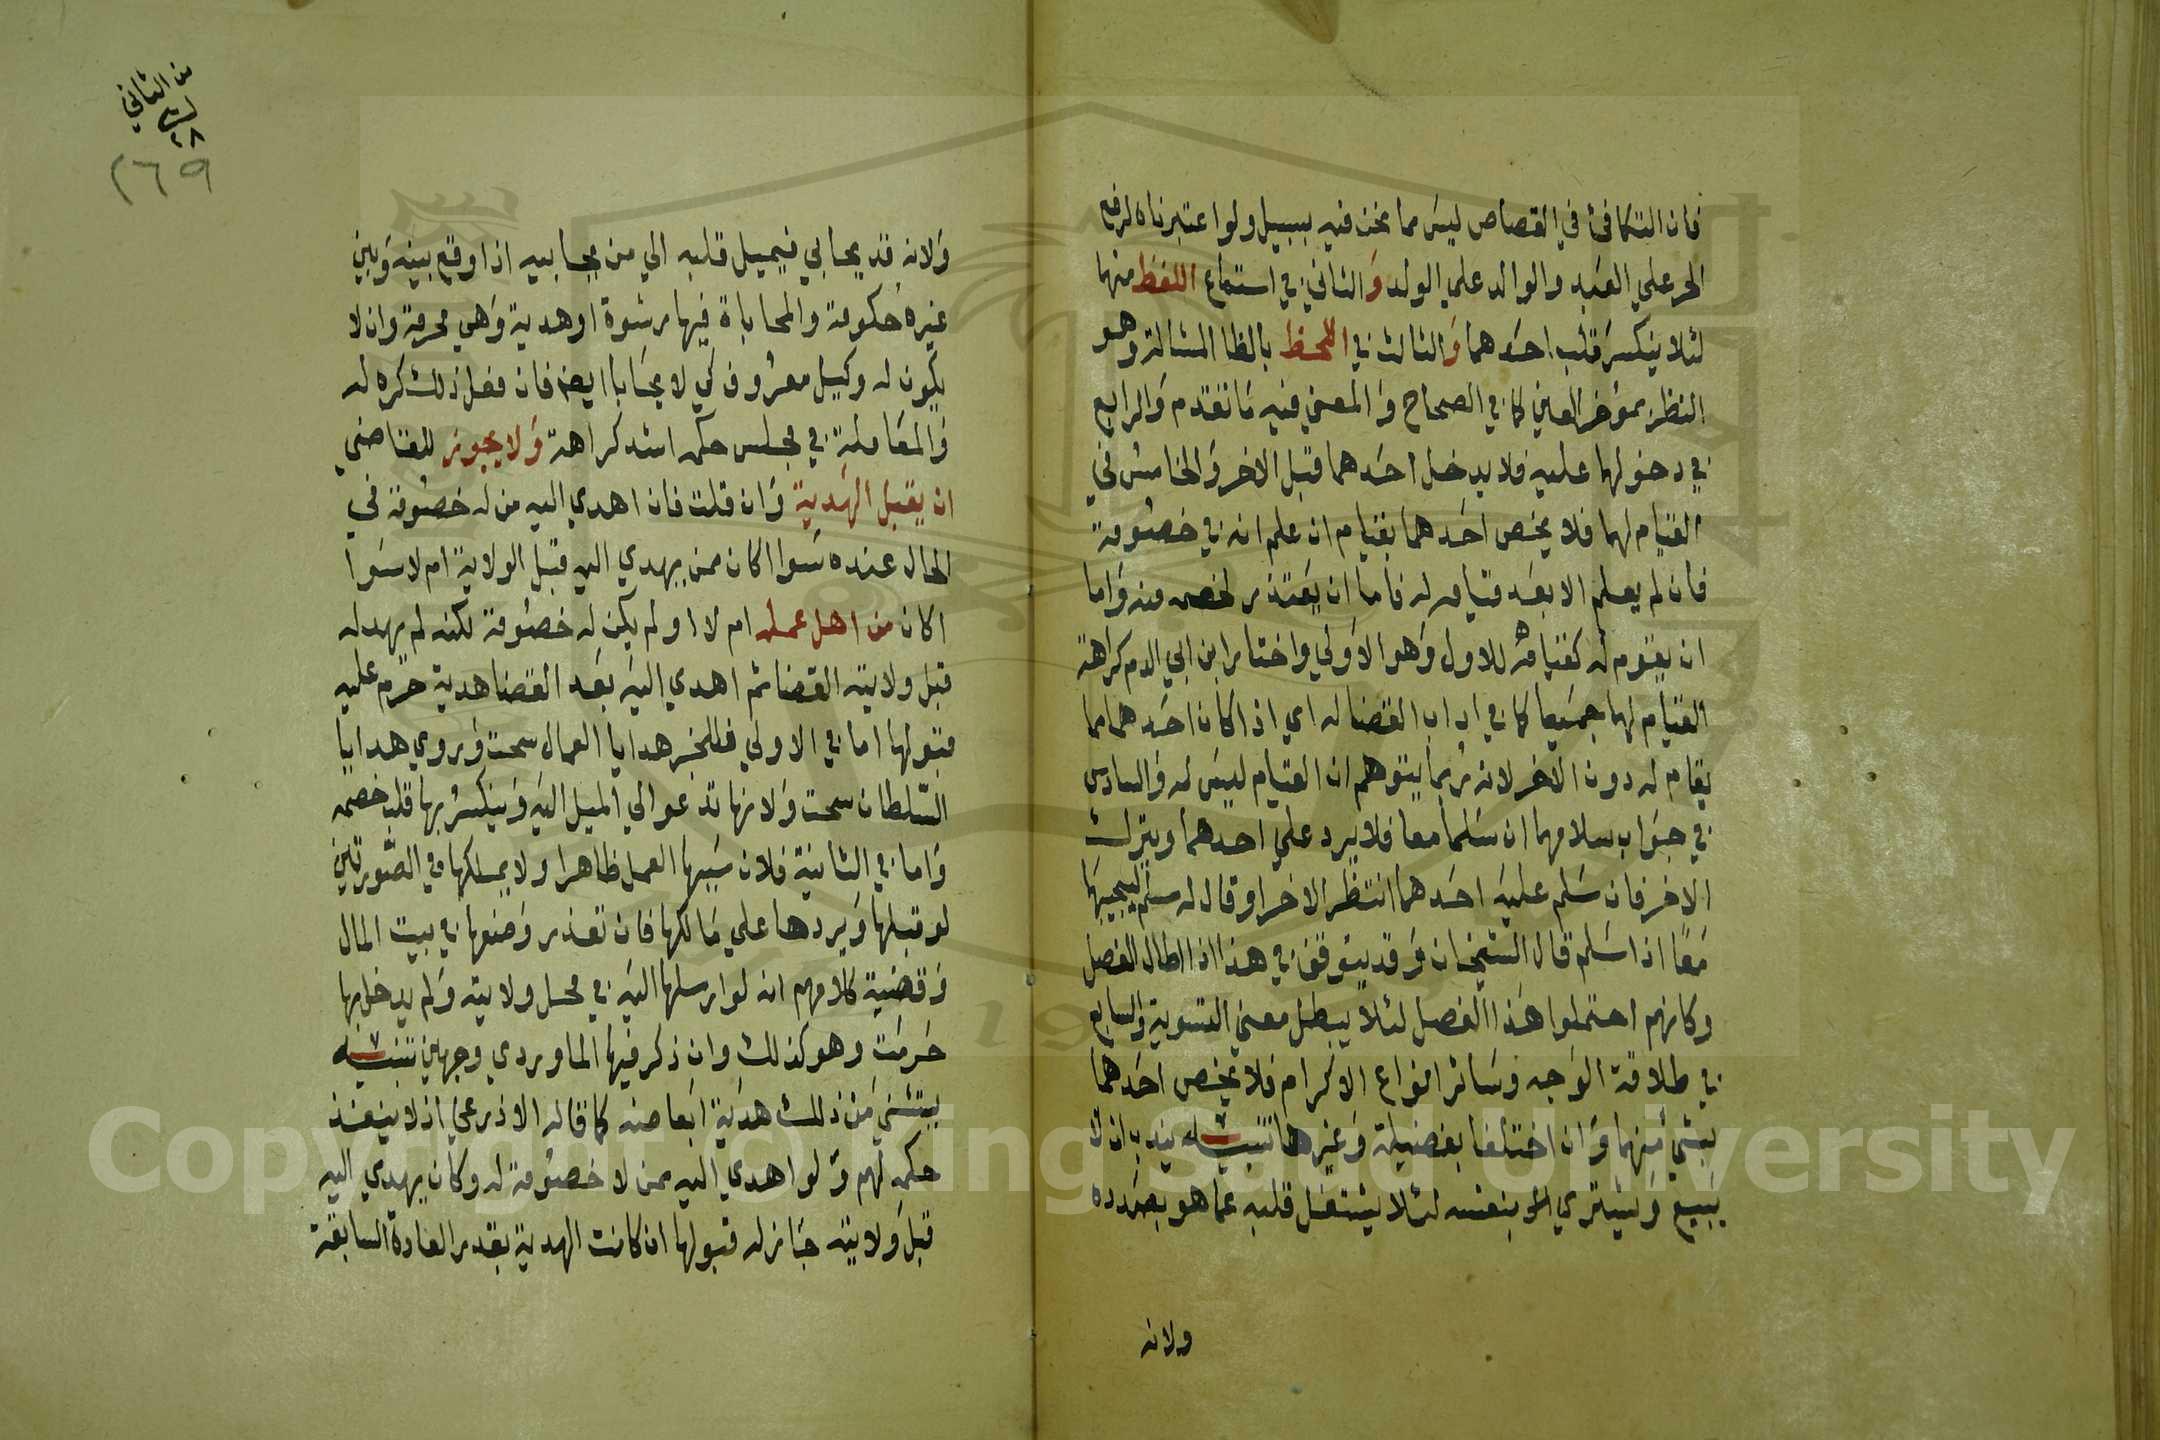 فان التكافئ في القصاص ليس مما نحن فيه بسبيل ولو اعتبرناه لرفع
الحر علي العبد والوالد علي الولد والثاني في استماع اللفظ منهما
لئلا ينكسر قلب احدهما والثالث في اللحظ بالظا المشالة وهو
النظر بموخر العين كما في الصحاح والمعني فيه ما تقدم والرابع
في دخولهما عليه فلا يدخل احدهما قبل الاخر والخامس في
القيام لهما فلا يخص احدهما بقيام ان علم انه في خصومة
فان لم يعلم الا بعد قيامه له فاما ان يعتذر لخصمه منه واما
ان يقوم له كقيامه للاول وهو الاولي واختار ابن ابي الدم كراهة
القيام لهما جميعا كما في اداب القضا له اي اذا كان احدهما مما
يقام له دون الاخر لانه ربما يتوهم ان القيام ليس له والسادس
في جواب سلامهما ان سلما معا فلا يرد علي احدهما ويترك
الاخر فان سلم عليه احدهما انتظر الاخر او قال له سلم ليجيبهما
معا اذا سلم قال الشيخان وقد يتوقف في هذا اذا طال الفصل
وكانهم احتملوا هذا الفصل لئلا يبطل معني التسوية والسابع
في طلاقة الوجه وسائر انواع الاكرام فلا يخص احدهما
بشي منها وان اختلفا بفضيلة وغيرها تنبيه يندب ان لا
يبيع ويشتري بنفسه لئلا يشتغل قلبه عما هو بصدده
ولانه
من الثاني
٢٨
٢٦٩
ولانه قد يحابي فيميل قلبه الي من يحابيه اذا وقع بينه وبين
غيره حكومة والمحاباة فيها رشوة او هدية وهي محرمة وان لا
يكون له وكيل معروف كي لا يحابا ايضا فان فعل ذلك كره له
والمعاملة في مجلس حكمه اشد كراهة ولا يجوز للقاضي
ان يقبل الهدية وان قلت فان اهدي اليه من له خصومة في
الحال عنده سوا اكان ممن يهدي اليه قبل الولاية ام لا سوا
اكان من اهل عمله ام لا او لم يكن له خصومة لكنه لم يهد له
قبل ولايته القضا ثم اهدي اليه بعد القضا هدية حرم عليه
قبولها اما في الاولي فللخبر هدايا العمال سحت وروي هدايا
السلطان سحت ولانها تدعوا الي الميل اليه وينكسر بها قلب خصمه
واما في الثانية فلان سببها العمل ظاهرا ولا يملكها في الصورتين
لو قبلها ويردها علي مالكها فان تعذر وضعها في بيت المال
وقضية كلامهم انه لو ارسلها اليه في محل ولايته ولم يدخل بها
حرمت وهو كذلك وان ذكر فيها الماوردي وجهين تنبيه
يستثني من ذلك هدية ابعاضه كما قاله الاذرعي اذ لا ينفذ
حكمه لهم ولو اهدي اليه ممن لا خصومة له وكان يهدي اليه
قبل ولايته جاز له قبولها ان كانت الهدية بقدر العادة السابقة
Copyright © King Saud University